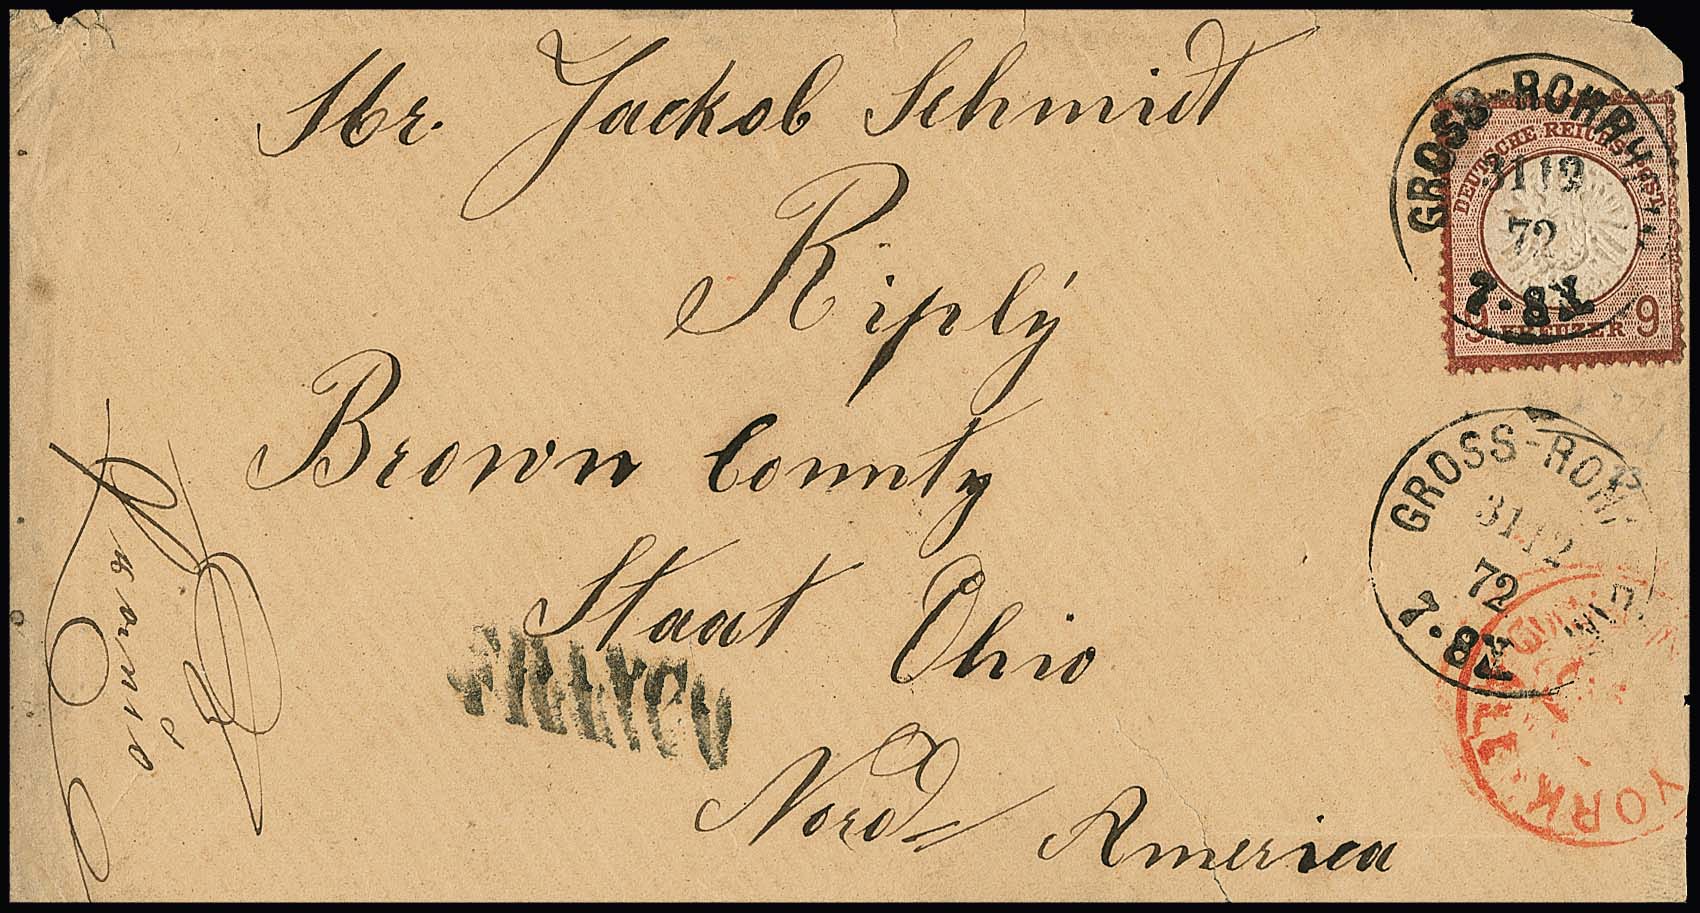 Mr. Jackob Schmidt
Riplÿ
Brown County
Staat Ohio
Nord America
FRANCO
GROSS-ROHR
31 12
72
7-8
DEUTSCHE REICHS-POST
9 KREUZER 9
GROSS-ROH
31.12
72
7-8
YORK